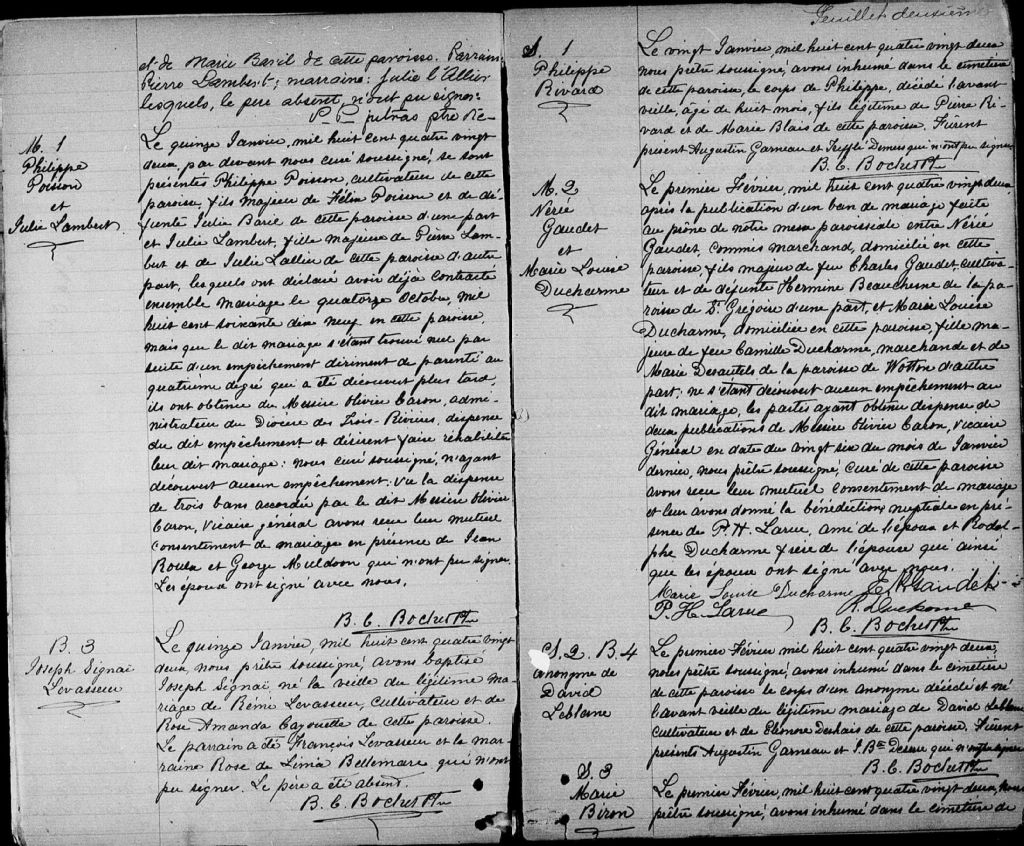 et de Marie Baril de cette paroisse. Parrain:
Pierre Lambert; marraine: Julie l'Allier
lesquels, le père absent, n'ont pu signer.
ptre
M. 1
Philippe
Poisson
et
Julie Lambert
Le quinze Janvier, mil huit cent quatre vingt
deux, par devant nous curé soussigné, se sont
présentés Philippe Poisson, cultivateur de cette
paroisse, fils majeur de Félix Poisson et de dé-
funte Julie Baril de cette paroisse d'une part
et Julie Lambert, fille majeure de Pierre Lam-
bert et de Julie Lallier de cette paroisse d'autre
part, lesquels ont déclaré avoir déjà contracté
ensemble mariage le quatorze Octobre, mil
huit cent soixante dix neuf en cette paroisse,
mais que le dit mariage s'étant trouvé nul par
suite d'un empêchement dirimant de parenté au
quatrième degré qui a été découvert plus tard,
ils ont obtenu du Messire Olivier Caron, admi-
nistrateur du Diocèse des Trois-Rivières, dispense
du dit empêchement et désirent faire réhabiliter
leur dit mariage: nous curé soussigné, n'ayant
découvert aucun empêchement: vu la dispense
de trois bans accordée par le dit Messire Olivier
Caron, Vicaire général avons reçu leur mutuel
consentement de mariage en présence de Jean
Roula et George Muldoon qui n'ont pu signer.
Les époux ont signé avec nous.
B. C. Bochet Ptre
B. 3
Joseph Signaï
Levasseur
Le quinze Janvier, mil huit cent quatre vingt
deux nous prêtre soussigné, avons baptisé
Joseph Signaï, né la veille du légitime ma-
riage de Rémi Levasseur, cultivateur et de
Rose Amanda Cayouette de cette paroisse.
Le parrain a été François Levasseur et la mar-
raine Rose de Lima Bellemare qui n'ont
pu signer. Le père a été absent.
B. C. Bochet Ptre
Feuillet deuxième
S. 1
Philippe
Rivard
Le vingt Janvier, mil huit cent quatre vingt deux
nous prêtre soussigné, avons inhumé dans le cimetière
de cette paroisse, le corps de Philippe, décédé l'avant
veille, âgé de huit mois, fils légitime de Pierre Ri-
vard et de Marie Blais de cette paroisse. Furent
présent Augustin Garneau et Treflé Demers qui n'ont pu signer
B. C. Bochet Ptre
M. 2
Nérée
Gaudet
et
Marie Louise
Ducharme
Le premier Février, mil huit cent quatre vingt deux,
après la publication d'un ban de mariage faite
au prône de notre messe paroissiale entre Nérée
Gaudet, commis marchand, domicilié en cette
paroisse, fils majeur de feu Charles Gaudet, cultiva-
teur et de défunte Hermine Beauchesne de la pa-
roisse de St. Grégoire d'une part, et Marie Louise
Ducharme, domiciliée en cette paroisse, fille ma-
jeure de feu Camille Ducharme, marchand et de
Marie Desautels de la paroisse de Wotton d'autre
part; ne s'étant découvert aucun empêchement au
dit mariage, les parties ayant obtenu dispense de
deux publications de Messire Olivier Caron, Vicaire
Général en date du vingt six du mois de Janvier
dernier, nous prêtre soussigné, curé de cette paroisse
avons reçu leur mutuel consentement de mariage
et leur avons donné la bénédiction nuptiale en pré-
sence de P. H. Larue, ami de l'époux et Rodol-
phe Ducharme frère de l'épouse qui ainsi
que les époux ont signé avec nous.
Marie Louise Ducharme E. N. Gaudet
P. H. Larue R. Ducharme
B. C. Bochet Ptre
S. 2. B. 4
anonyme de
David
Leblanc
Le premier Février mil huit cent quatre vingt deux,
nous prêtre soussigné, avons inhumé dans le cimetière
de cette paroisse le corps d'un anonyme décédé et né
l'avant veille du légitime mariage de David Leblanc
Cultivateur et de Eléonore Deshais de cette paroisse. Furent
présents Augustin Garneau et J. Bte qui n'ont pu signer
B. C. Bochet Ptre
S. 3
Marie
Biron
Le premier Février, mil huit cent quatre vingt deux, nous
prêtre soussigné, avons inhumé dans le cimetière de